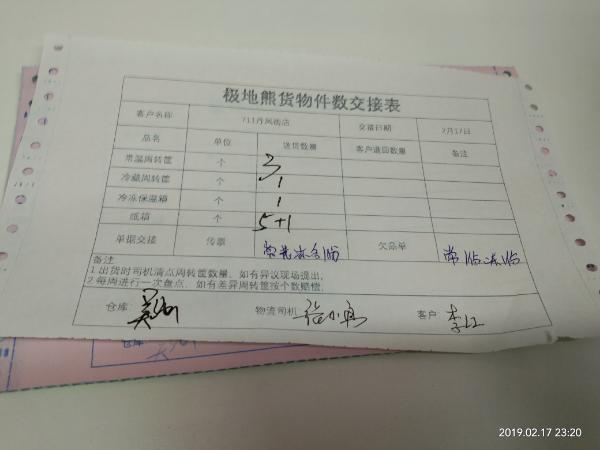 极地熊货物件数交接表
客户名称 711丹凤街店 交接日期 2月17日
品名 单位 送货数量 客户退回数量 备注
常温周转筐 个 3
冷藏周转筐 个 1
冷冻保温箱 个 1
纸箱 个 5+1
单据交接 传票 欠品单
备注
1.出货时司机清点周转筐数量，如有异议现场提出，
2.每周进行一次盘点，如有差异周转筐按个数赔偿，
仓库： 物流司机 客户 李江
仓库
2019.02.17 23:20